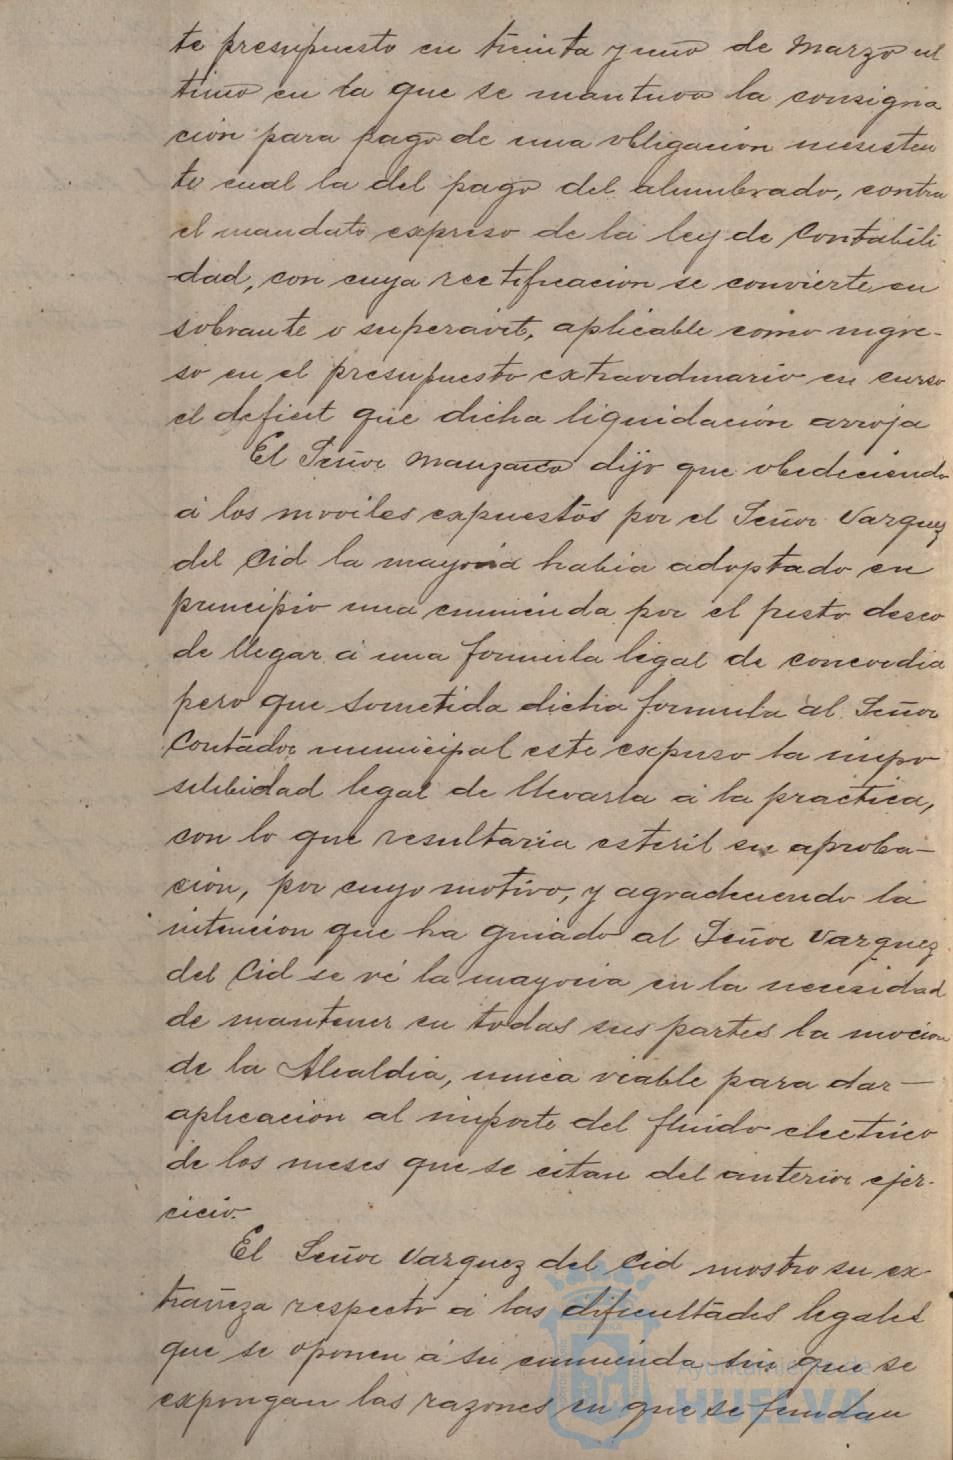 te presupuesto en treinta y uno de Marzo ul
timo en la que se mantuvo la consigna
ción para pago de una obligación inesisten
te cual la del pago del alumbrado, contra
el mandato expreso de la ley de Contabili
dad, con cuya rectificacion se convierte en
sobrante o superávit, aplicable como ingre-
so en el presupuesto extraordinario en curso
el deficit que dicha liquidación arroja
El Señor Manzano dijo que obedeciendo
á los moviles expuestos por el Señor Vazquez
del Cid la mayoria habia adoptado en
principio una enmienda por el justo deseo
de llegar á una formula legal de concordia
pero que sometida dicha formula al Señor
Contador municipal este expuso la impo
sibilidad legal de llevarla á la practica,
con lo que resultaria esteril su aproba-
ción, por cuyo motivo, y agradeciendo la
intencion que ha guiado al Señor Vazquez
del Cid se vé la mayoria en la necesidad
de mantener en todas sus partes la mocion
de la Alcaldia, unica viable para dar-
aplicacion al importe del fluido electrico
de los meses que se citan del anterior ejer-
cicio.
El Señor Vazquez del Cid mostro su ex-
trañeza respecto á las dificultades legales
que se oponen á su enmienda sin que se
expongan las razones en que se fundan
Ayuntamiento de
HUELVA